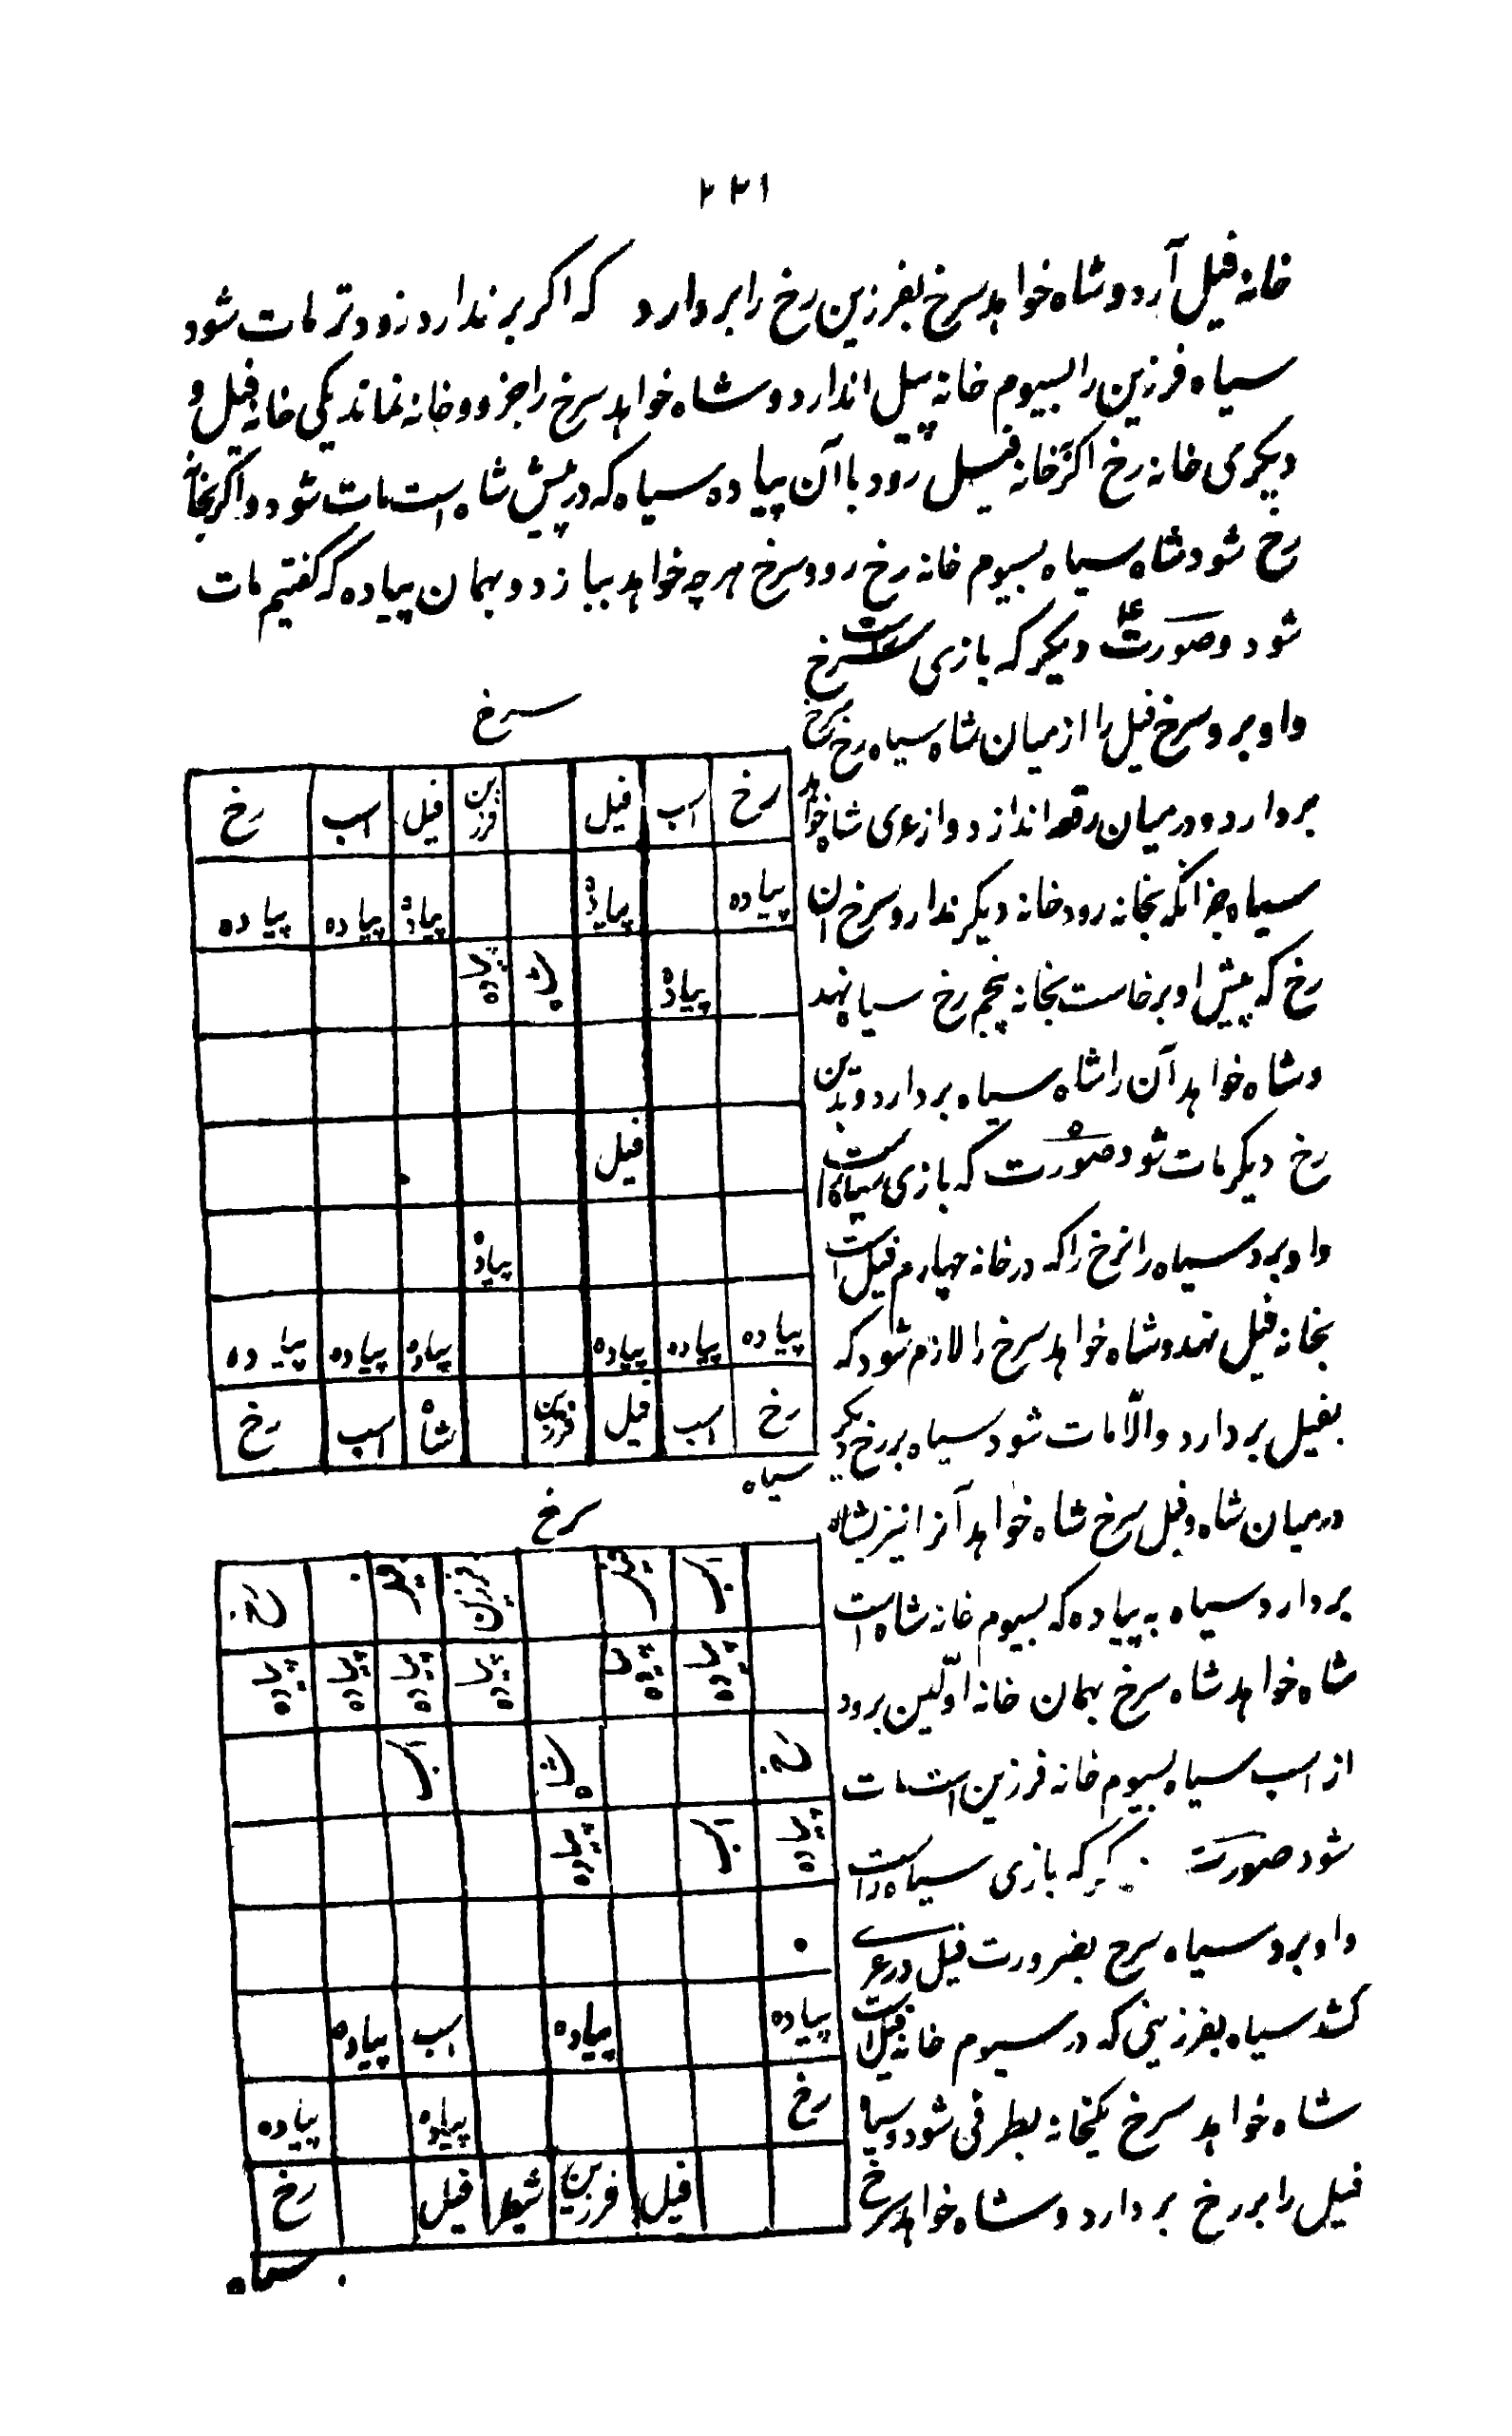 ۲۲۱
خانه فیل آرد و شاه خواهد سرخ بفرزین رخ را بردارد که اکر بر ندارد زودتر مات شود
سیاه فرزین را بسیوم خانه پیل اندارد و شاه خواهد سرخ را جز دو خانه نماند یکی خانه فیل و
دیکری خانه رخ اکر بخانه فیل رود با آن پیاده سیاه که در پیش شاه است مات شود و اکر بخانه
رخ شود شاه سیاه بسیوم خانه رخ رود و سرخ هرچه خواهد ببازد و بهمان پیاده که کفتیم مات
شود وصورت ۴ دیکر که بازی سرخ است
داو برو سرخ فیل را از میان شاه سیاه رخ سرخ
بردارد و درمیان رقعه اندازد و از عری شا خواهد
سیاه جز آنکه بخانه رود خانه دیکر ندارد سرخ آن
رخ که پیش او برخاست بخانه پنجم رخ سیا نهد
وشاه خواهد آن را شاه سیاه بردارد و بدین
رخ دیکر مات شود صورت ۵ که بازی سیاه است
داو برد سیاه را نرخ را که در خانه چهارم فیل است
بخانه فیل نهد و شاه خواهد سرخ را لازم شود که
بفیل بردارد والّا مات شود سیاه بر رخ دیکر
درمیان شاه و فیل سرخ شاه خواهد آنرا نیز بشاه
بردارد سیاه به پیاده که بسیوم خانه شاه است
شاه خواهد شاه سرخ بهمان خانه اوّلین برود
از اسب سیاه بسیوم خانه فرزین است مات
شود صورت که بازی سیاه راست
داو برد سیاه سرخ بضرورت فیل در عری
کشد سیاه بفرزینی که در سیوم خانه فیل است
شاه خواهد سرخ یکخانه بطرفی شود و سیا
فیل را بر رخ بردارد و شاه خواهد سرخ
سرخ
رخ اسب فیل فرزین فیل اسب رخ
پیاده پیاده پیاده پیاده پیاده
پیاده شاه پیاده
فیل
پیاده
پیاده پیاده پیاده پیاده پیاده پیاده
رخ اسب فیل فرزین شاه اسب رخ
سیاه
سرخ
اسب فیل فرزین فیل رخ
پیاده پیاده پیاده پیاده پیاده پیاده
رخ شاه اسب
پیاده اسب پیاده
پیاده پیاده اسب پیاده
رخ پیاده پیاده
فیل فرزین شاه فیل رخ
سیاه